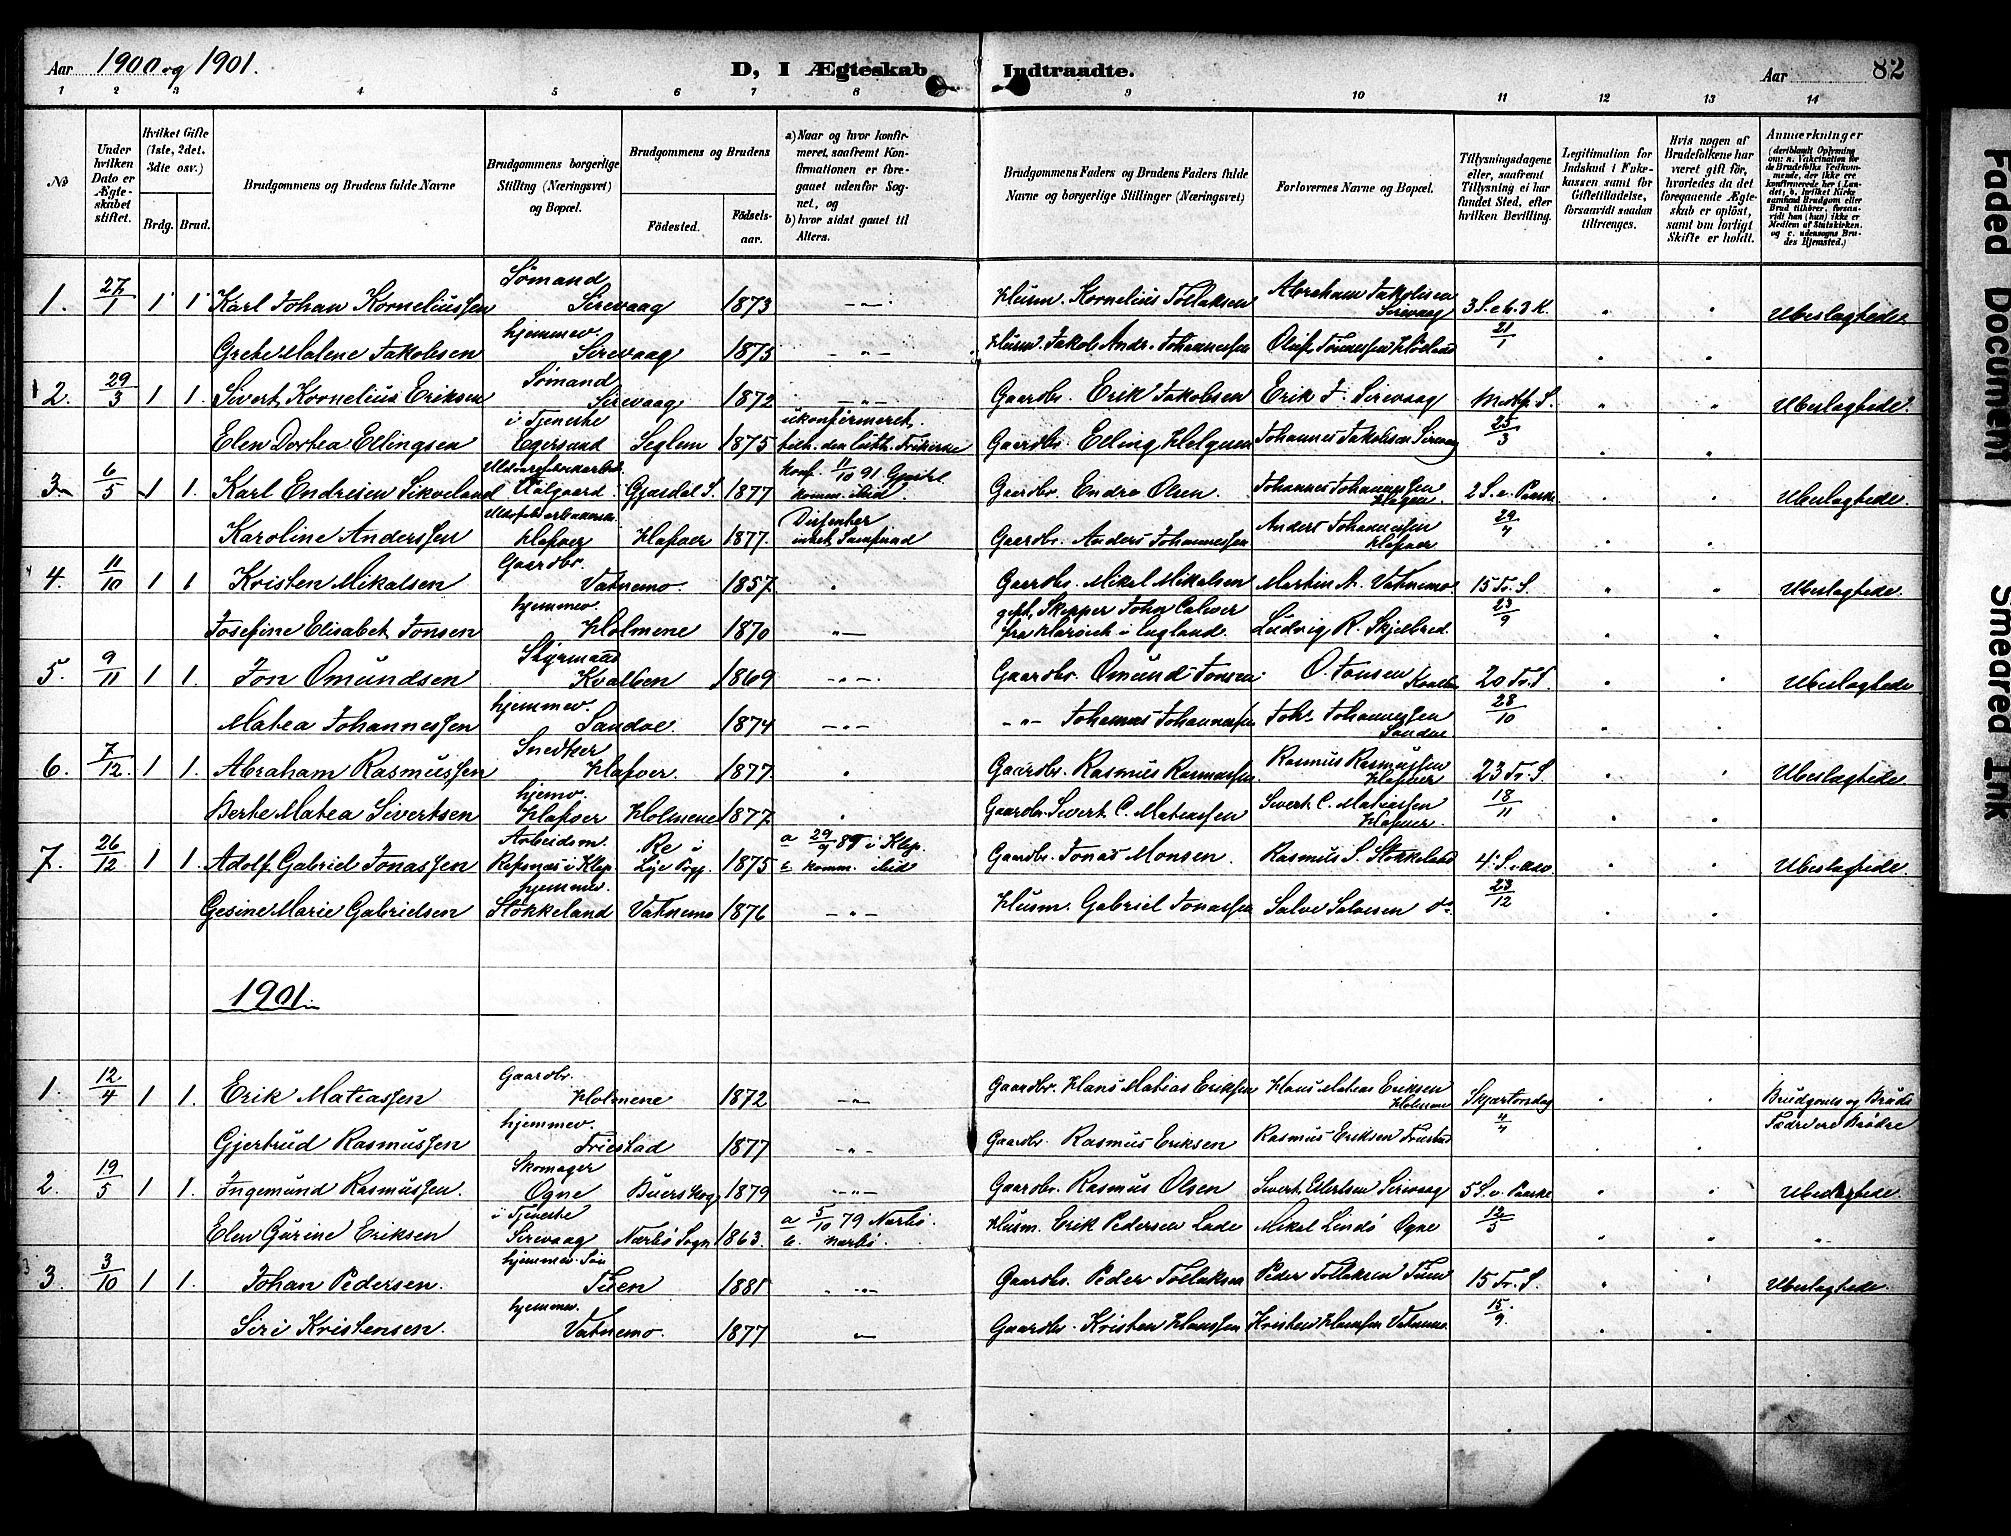 Aar 1900 og 1901.
D, I Ægteskab Indtraadte.
Aar 82
1 2 3 4 5 6 7 8 9 10 11 12 13 14
No
Under hvilken Dato er Ægteskabet stiftet.
Hvilket Gifte (1ste, 2det, 3die osv.)
Brdg. Brud.
Brudgommens og Brudens fulde Navne
Brudgommens borgerlige Stilling (Næringsvei) og Bopæl.
Brudgommens og Brudens
Födested.
Födselsaar.
a) Naar og hvor konfirmeret, saafremt Konfirmationen er foregaaet udenfor Sognet, og
b) hvor sidst gaaet til Alters.
Brudgommens Faders og Brudens Faders fulde Navne og borgerlige Stillinger (Næringsvei)
Forlovernes Navne og Bopæl.
Tillysningsdagene eller, saafremt Tillysning ei har fundet Sted, efter hvilken Bevilling.
Legitimation for Indskud i Enkekassen samt for Giftetilladelse, forsaavidt saadan tiltrænges.
Hvis nogen af Brudefolkene har været gift för, hvorledes da det foregaaende Ægteskab er oplöst, samt om lovligt Skifte er holdt.
Anmærkninger (deriblandt Oplysning om: a. Vakcination for de Brudefolks Vedkommende, der ikke ere konfirmerede her i Landet; b. hvilket Kirkesamfund Brudgom eller Brud tilhörer, forsaavidt han (hun) ikke er Medlem af Statskirken, og c. udensogns Brudes Hjemsted.)
1. 27/1 1 1 Karl Johan Korneliussen Sømand Sirevaag 1873 -„- Husm. Kornelius Tollaksen Abraham Jakobsen Sirevaag 3 S. e. h. 3 K. 21/1 Ubeslægtede
Grete Malene Jakobsen hjemmev. Sirevaag 1873 -„- Husm. Jakob Andr. Johannessen Oluf Tønnessen Høiland
2. 29/3 1 1. Sivert Kornelius Eriksen Sømand Sirevaag 1872 -„- Gaardbr. Erik Jakobsen Erik J. Sirevaag Midtf. S. 25/3 Ubeslægtede.
Elen Dortea Ellingsen i Tjeneste Egersund Seglem 1875 ukonfirmeret, Gaardbr. Elling Helgesen Johannes Jakobsen Sirevaag
3 6/5 1 1. Karl Endresen Sikveland Aalgaard Gjesdal S. 1877 konf. 11/10 91 Gjesdal komm. ibid. Gaardbr. Endre Olsen. Johannes Johannessen 2 S. e. Paaske 29/4 Ubeslægtede
Karoline Anderssen Hafsøer Hafsøer 1877. Dissenter Gaardbr. Anders Johannessen Anders Johannessen Hafsøer
4. 11/10 1 1 Kristen Mikalsen Gaardbr. Vatnemo. 1857 „ Gaardbr. Mikal Mikalsen Martin A. Vatnemo. 15 Tr. S. 23/9 Ubeslægtede.
Josefine Elisabet Jonsen hjemmev. Holmene 1870 -„- Skipper John fra Harwich i England. Ludvig R. Skjelbred.
5. 9/11 1 1. Jon Omundsen Styrmand Kvalben 1869 -„- Gaardbr. Omund Jonsen O. Jonsen Kvalben 20 Tr. S. 28/10 Ubeslægtede
Matea Johannessen hjemmev. Sandve. 1874 -„- -„- Johannes Johannessen Joh. Johannessen Sandve
6. 7/12. 1 1. Abraham Rasmussen Snedker Hafsøer. 1877. „ Gaardbr. Rasmus Rasmussen Rasmus Rasmussen Hafsøer 23 Tr. S. 18/11 Ubeslægtede
Berte Matea Sivertsen hjemv. Hafsøer Holmene 1877. „ Gaardbr. Sivert C. Matiassen Sivert C. Matiassen Hafsøer.
7. 26/12 1 1 Adolf Gabriel Jonassen Arbeidsm. Re i Lye Pgj. 1875 a 29/9 89 i Klep. komm. ibid Gaardbr. Jonas Monsen. Rasmus S. Stokkeland 4. S. i Adv. 23/12 Ubeslægtede.
Gesine Marie Gabrielsen hjemmev. Stokkeland Vatnemo 1876 -„- Husm. Gabriel Jonassen Salve Salvesen do
1901.
1. 12/4 1 1. Erik Matiassen Gaardbr. Holmene 1872 -„- Gaardbr. Hans Matias Eriksen Hans Matias Eriksen Holmene Skjærtorsdag 4/4 Brudgoms og Bruds Fædre ere Brødre
Gjertrud Rasmussen hjemmev. Friestad 1877 -„- Gaardbr. Rasmus Eriksen Rasmus Eriksen Friestad
2. 19/5 1 1. Ingemund Rasmussen. Skomager Ogne Buerskog 1879 -„- Gaardbr. Rasmus Olsen Sivert Eilertsen Sirevaag 5 S. e. Paaske 12/5 Ubeslægtede
Elen Gurine Eriksen i Tjeneste Sirevaag Nærbø Sogn 1863. a 5/10 79 Nærbø. b. Nærbø. Husm. Erik Pedersen Lade Mikal Lindø Ogne -„-
3. 3/10 1 1. Johan Pedersen. hjemmev. Søn Tuen 1881 -„- Gaardbr. Peder Tollaksen Peder Tollaksen Tuen 15 Tr. S. 15/9. Ubeslægtede
Siri Kristensen. hjemmev. Vatnemo. 1877 -„- Gaardbr. Kristen Hanssen Kristen Hanssen Vatnemo.
Faded Document
Smeared Ink